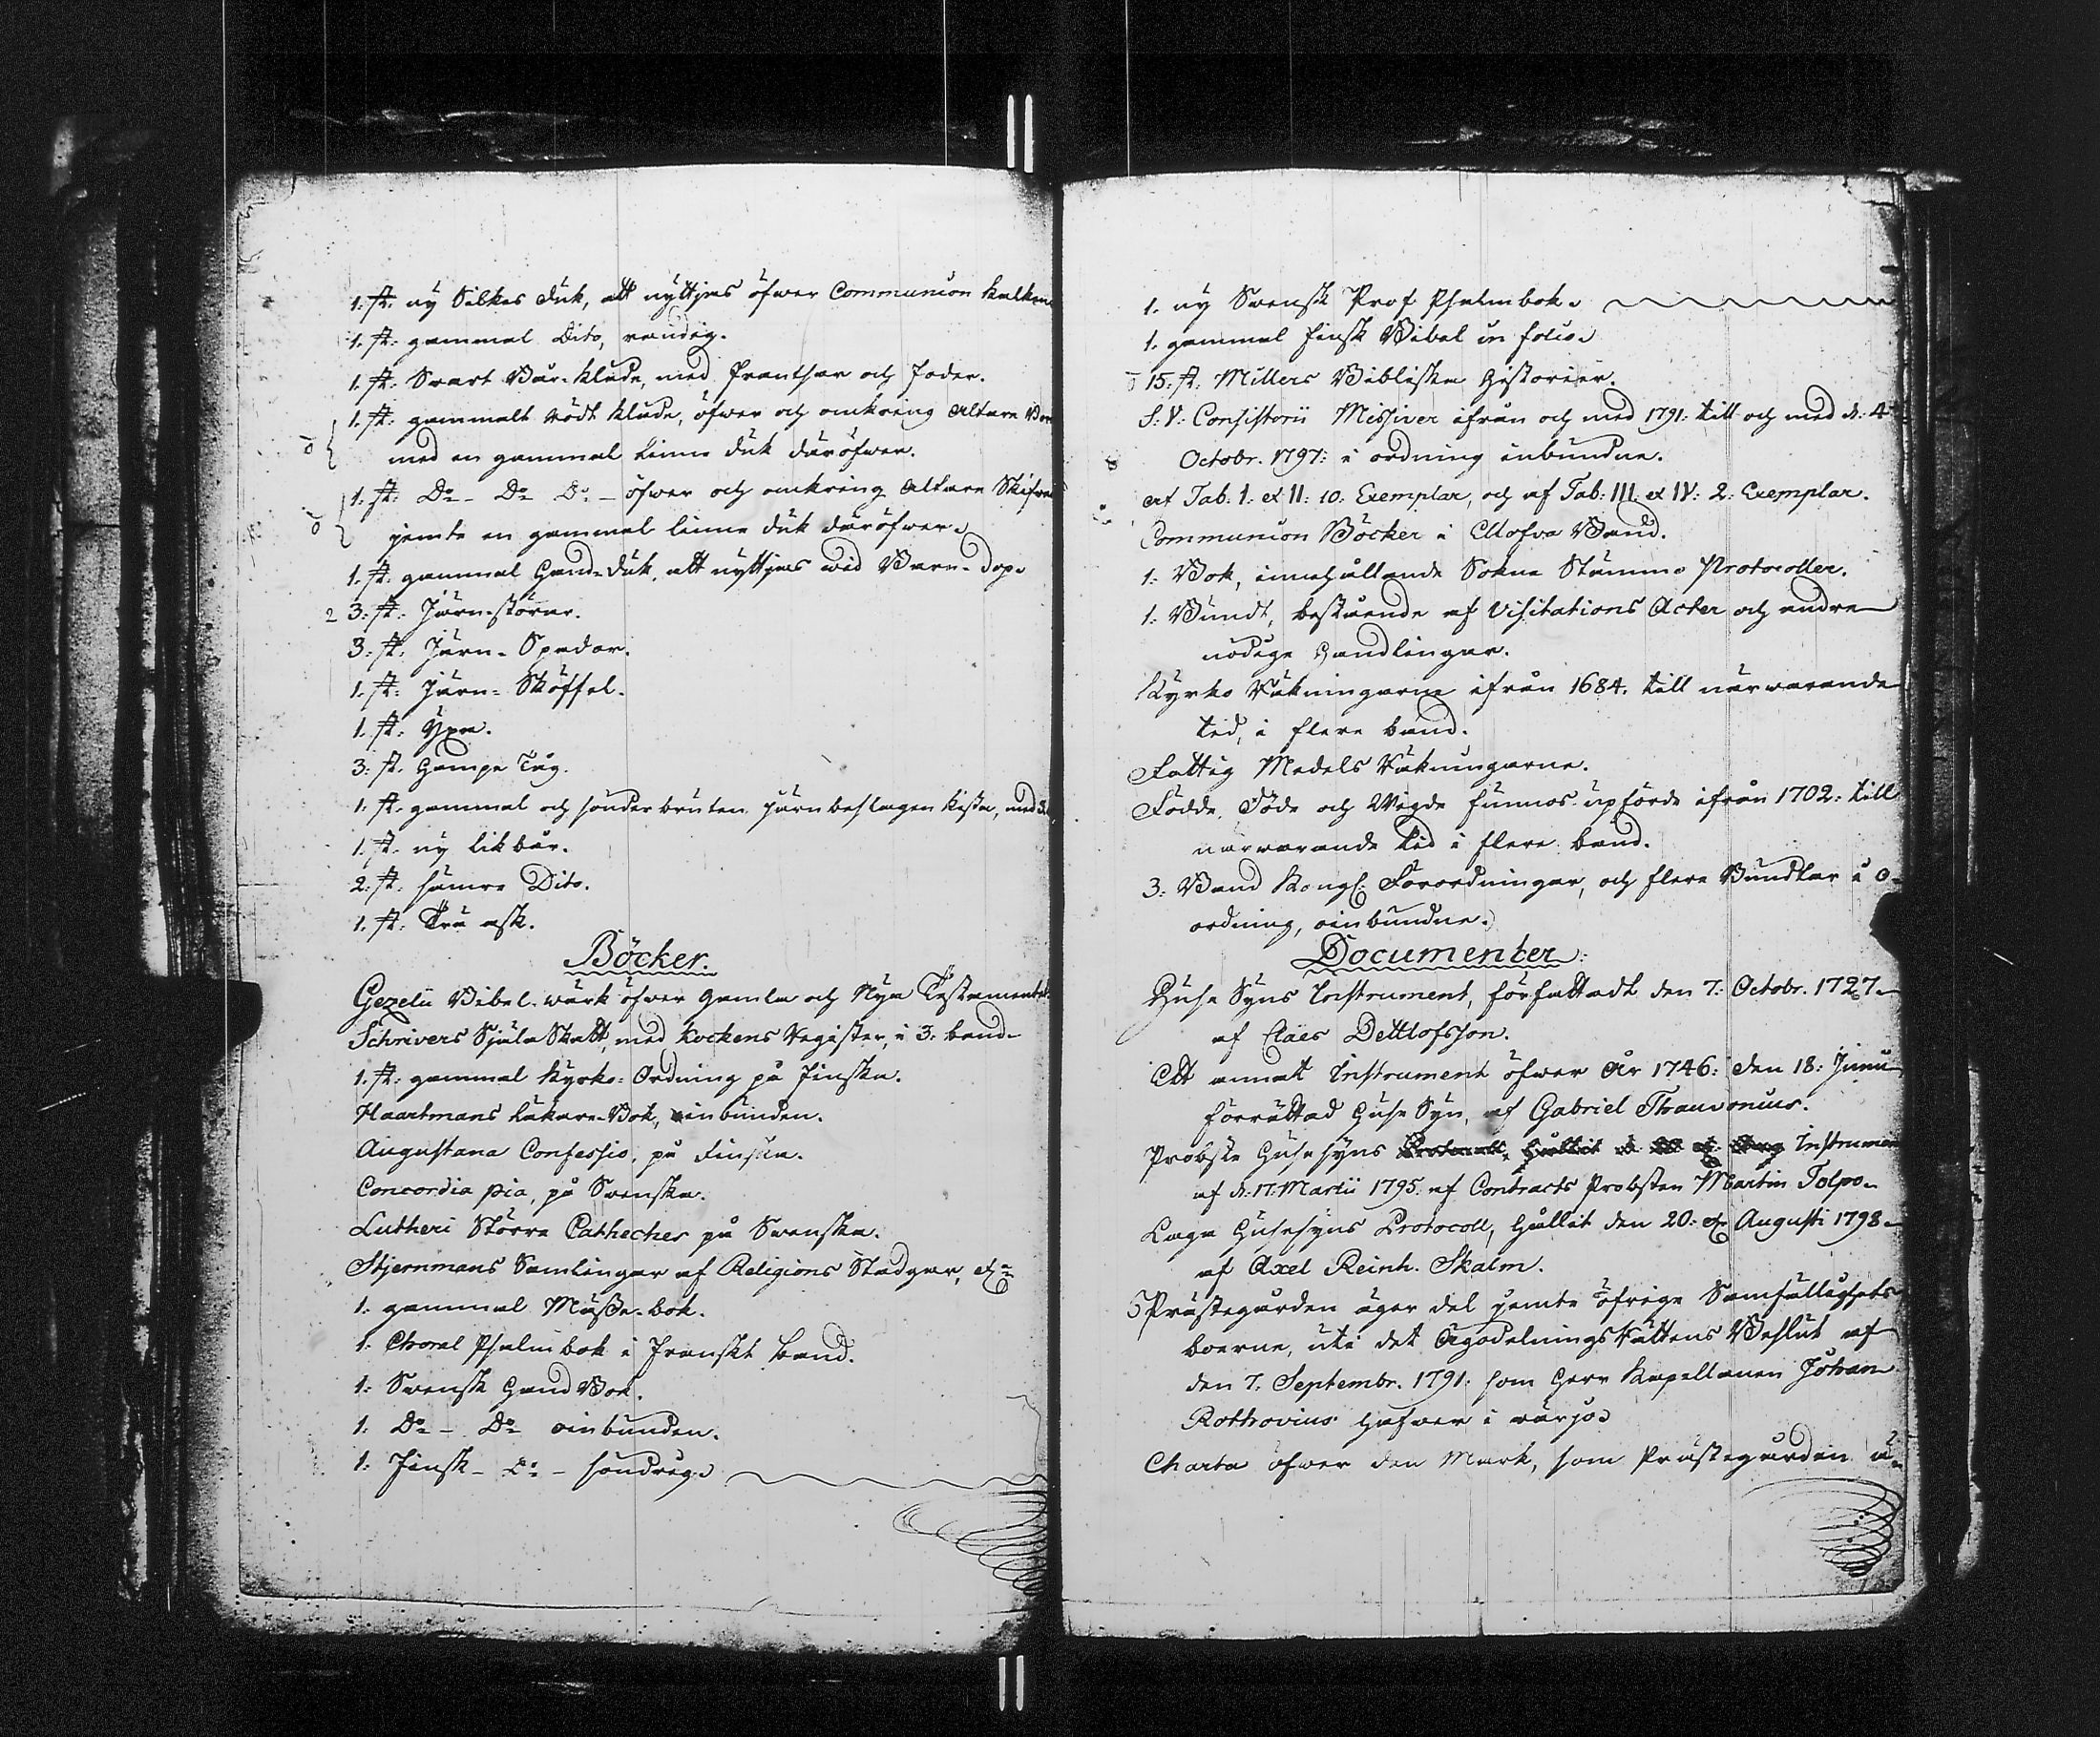 1. st. ny Silkes duk, att nyttjas öfwer Communion Kalken
1. st. gammal Dito, randig.
1. st. Svart Bår-kläde, med frantsar och foder.
1. st. gammalt rödt kläde, öfwer och omkring Altare
med en gammal linne duk däröfwer.
1. st. Do - Do Do - öfwer och omkring Altare Skifwan
jemte en gammal linne duk däröfwer.
1. st. gammal Hand-duk, att nyttjas wid Barn-dop.
2 3: st. Järn-störar.
3: st. Järn-Spadar.
1. st. Järn-Skoffel.
1. st. Yxa.
3: st. Hampe Tåg.
1. st. gammal och sönderbruten järnbeslagen kista, med
1. st. ny likbår.
2: st. sämre Dito.
1. st. Trä ask.
Böcker.
Gezelii Bibel-wärk öfwer Gamla och Nya Testamentet
Schrivers Själa Skatt, med Kockens Register, i 3: band.
1. st. gammal Kyrko-Ordning på Finska.
Haartmans Läkare-Bok, oinbunden.
Augustana Confessio, på Finska.
Concordia pia, på Svenska.
Lutheri Större Catheches på Svenska.
Stjernmans Samlingar af Religions Stadgar, &c
1. gammal Mässe-bok.
1. Choral Psalmbok i Franskt band.
1. Svensk Hand Bok.
1. Do - Do oinbunden.
1. Finsk - Do - söndrig.
1. ny Svensk Prof Psalmbok.
1. gammal finsk Bibel in folio.
15. st. Millers Bibliska Historier.
S: V: Consistorii Missiver ifrån och med 1791: till och med d. 4
Octobr. 1797: i ordning inbundne.
af Tab. I. et II: 10: Exemplar, och af Tab: III: et IV: 2: Exemplar.
Communion Böcker i Band.
1: Bok, innehållande Sokne Stämmo Protocoller.
1: Bundt, bestående af Visitations Acter och andra
nödige Handlingar.
Kyrko Räkningarne ifrån 1684. till närwarande
tid, i flere band.
Fattig Medels Räkningarne.
Födde, Döde och Wigde finnas upförde ifrån 1702: till
närwarande tid i flere band.
3: Band Kongl: Förordningar, och flere Bundtar i o-
ordning, oinbundne.
Documenter:
Huse Syns Instrument, författadt den 7: Octobr. 1727.
af Claes Dettlofsson.
Ett annat Instrument öfwer År 1746: den 18: Junii
förrättad Huse Syn, af Gabriel Thauvonius.
Probste Husesyns Instrument
af d. 17. Martii 1795. af Contracts Probsten Martin Tolpo.
Laga Husesyns Protocoll, hållit den 20: Augusti 1798.
af Axel Reinh. Skalm.
Prästegården äger del jemte öfrige Samfällighets
boerne, uti det Ägodelnings Rättens Beslut af
den 7. Septembr. 1791. som Herr Kapellanen Johan
Rothovius hafwer i
Charta öfwer den Mark, som Prästegården ä-